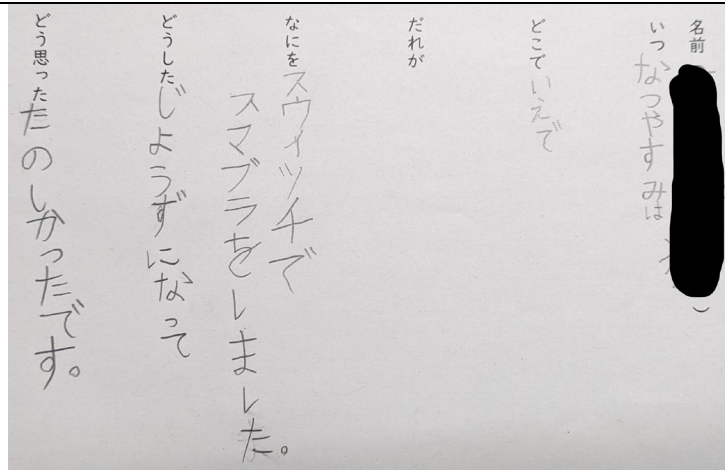 名前（　）
いつ なつやすみは
どこで いえで
だれが
なにを スウィッチで
スマブラをしました。
どうした じょうずになって
どう思った たのしかったです。